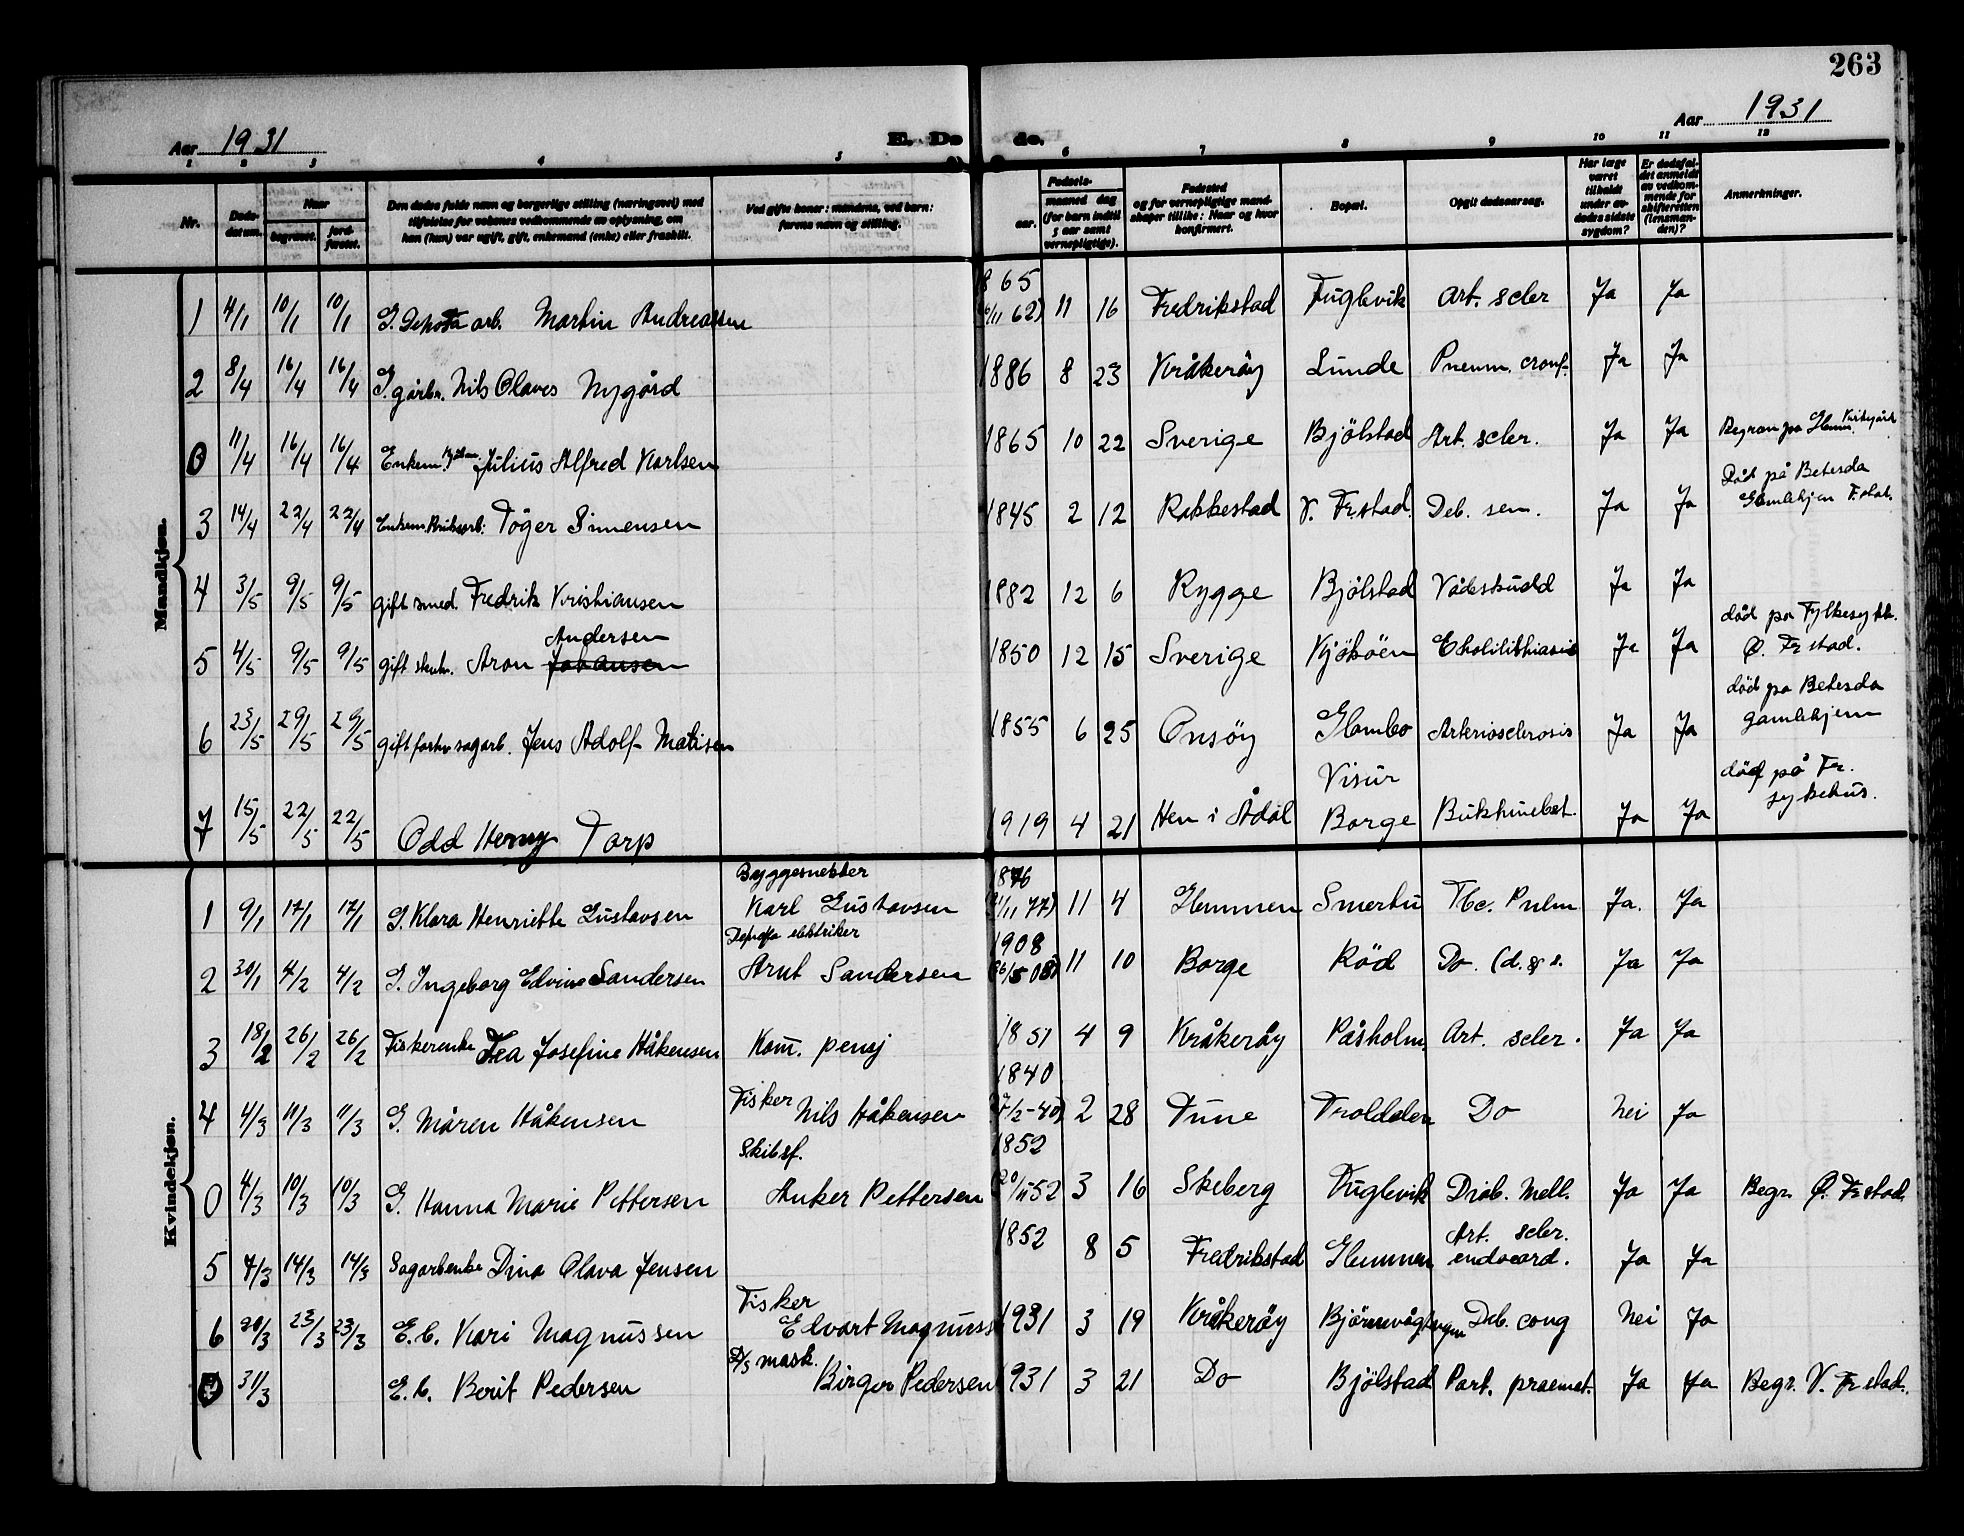 263
Aar 1931
E. Dø
de.
Aar 1931
1 2 3 4 5 6 7 8 9 10 11 12
Nr.
Døds-
datum.
Naar
begravet.
jord-
fæstet.
Den dødes fulde navn og borgerlige stilling (næringsvei) med
tilføielse for voksnes vedkommende av oplysning, om
han (hun) var ugift, gift, enkemand (enke) eller fraskilt.
Ved gifte koner: mandens, ved barn:
farens navn og stilling.
Fødsels-
aar.
maaned dag
(for barn indtil
5 aar samt
vernepligtige).
Fødested
og for vernepligtige mand-
skaper tillike: Naar og hvor
konfirmert.
Bopæl.
Opgit dødsaarsag.
Har læge
været
tilkaldt
under av-
dødes sidste
sygdom?
Er dødsfal-
det anmeldt
av vedkom-
mende for
skifteretten
(lensman-
den)?
Anmerkninger.
Mandkjøn.
1 4/1 10/1 10/1 G. Depotarb. Martin Andreassen 1865 (16/11 62) 11 16 Fredrikstad Fuglevik Art. scler Ja Ja
2 8/4 16/4 16/4 G. garbr. Nils Olaves Nygård 1886 8 23 Kråkerøy Lunde Pneum. croup. Ja Ja
0 11/4 16/4 16/4 Enkem. Julius Alfred Karlsen 1865 10 22 Sverige Bjølstad Art. scler. Ja Ja Begrav på Glemm. Kirkegård
3 14/4 22/4 22/4 Enkem. Tøger Simensen 1845 2 12 Rakkestad V. Fr.stad. Deb. sen. Ja Ja Død på Betesda Gamlehjem F.stad.
4 3/5 9/5 9/5 gift smed. Fredrik Kristiansen 1882 12 6 Rygge Bjølstad Vådeskudd Ja Ja
5 4/5 9/5 9/5 gift skuhr. Aron Johansen Andersen 1850 12 15 Sverige Kjøkøen Cholilithiasis Ja Ja død pa Fylkesykh. Ø. Fr stad.
6 23/5 29/5 29/5 gift forhv sagarb. Jens Adolf Matisen 1855 6 25 Onsøy Glombo Arteriosclerosis Ja Ja død pa Betesda gamlehjem
7 15/5 22/5 22/5 Odd Henry Torp 1919 4 21 Hen i Ådal Visur Borge Bukhinebet. Ja Ja død på Fr. sykehus.
Kvindekjøn.
1 9/1 17/1 17/1 G. Klara Henriette Gustavsen Byggesnekker Karl Gustavsen 1876 (/11 77) 11 4 Glemmen Smertu Tbc. Pulm Ja. Ja
2 30/1 4/2 4/2 G. Ingeborg Edvine Sandersen Depota elektriker Arnt Sandersen 1908 (/5 08) 11 10 Borge Rød Do. (d. & s. Ja Ja
3 18/2 26/2 26/2 Fiskerenke Tea Josefine Håkensen Kom. pensj 1851 4 9 Kråkerøy Påsholm. Art. scler. Ja Ja
4 4/3 11/3 11/3 G. Maren Håkensen Fisker Nils Håkensen 1840 (/2-40) 2 28 Tune Troldalen Do Nei Ja
0 4/3 10/3 10/3 G. Hanna Marie Pettersen Skibsf. Anker Pettersen 1852 (20/11 52 3 16 Skeberg Fuglevik Diab. Mell. Ja Ja Begr. Ø. Fr stad.
5 7/3 14/3 14/3 Sagarbenke Dina Olava Jensen 1852 8 5 Fredrikstad Glemmen Art. scler. endocard. Ja Ja
6 20/3 23/3 23/3 E. b. Kari Magnussen Fisker Edvart Magnuss 1931 3 19 Kråkerøy Bjørnevågtangen Deb. cong Nei Ja
0 31/3 E. b. Berit Pedersen D/S mask. Birger Pedersen 1931 3 21 Do Bjølstad Part. praemat. Ja Ja Begr. V. Fr stad.